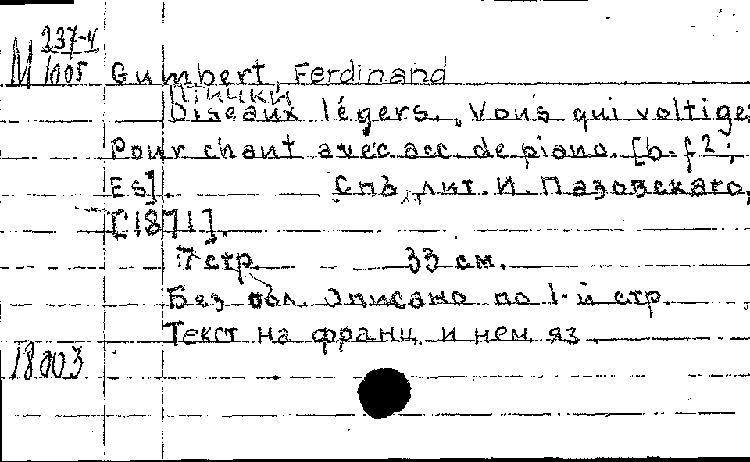 М 237-4
1005
Gumbert, Ferdinand
Птички
Oiseaux légers. "Vous qui voltige
Pour chant avec acc. de piano. [b-f²;
Es]. Спб, лит. И. Пазовскаго,
[1871].
7 стр. 33 см.
Без обл. Описано по 1-й стр.
Текст на франц. и нем. яз.
18003